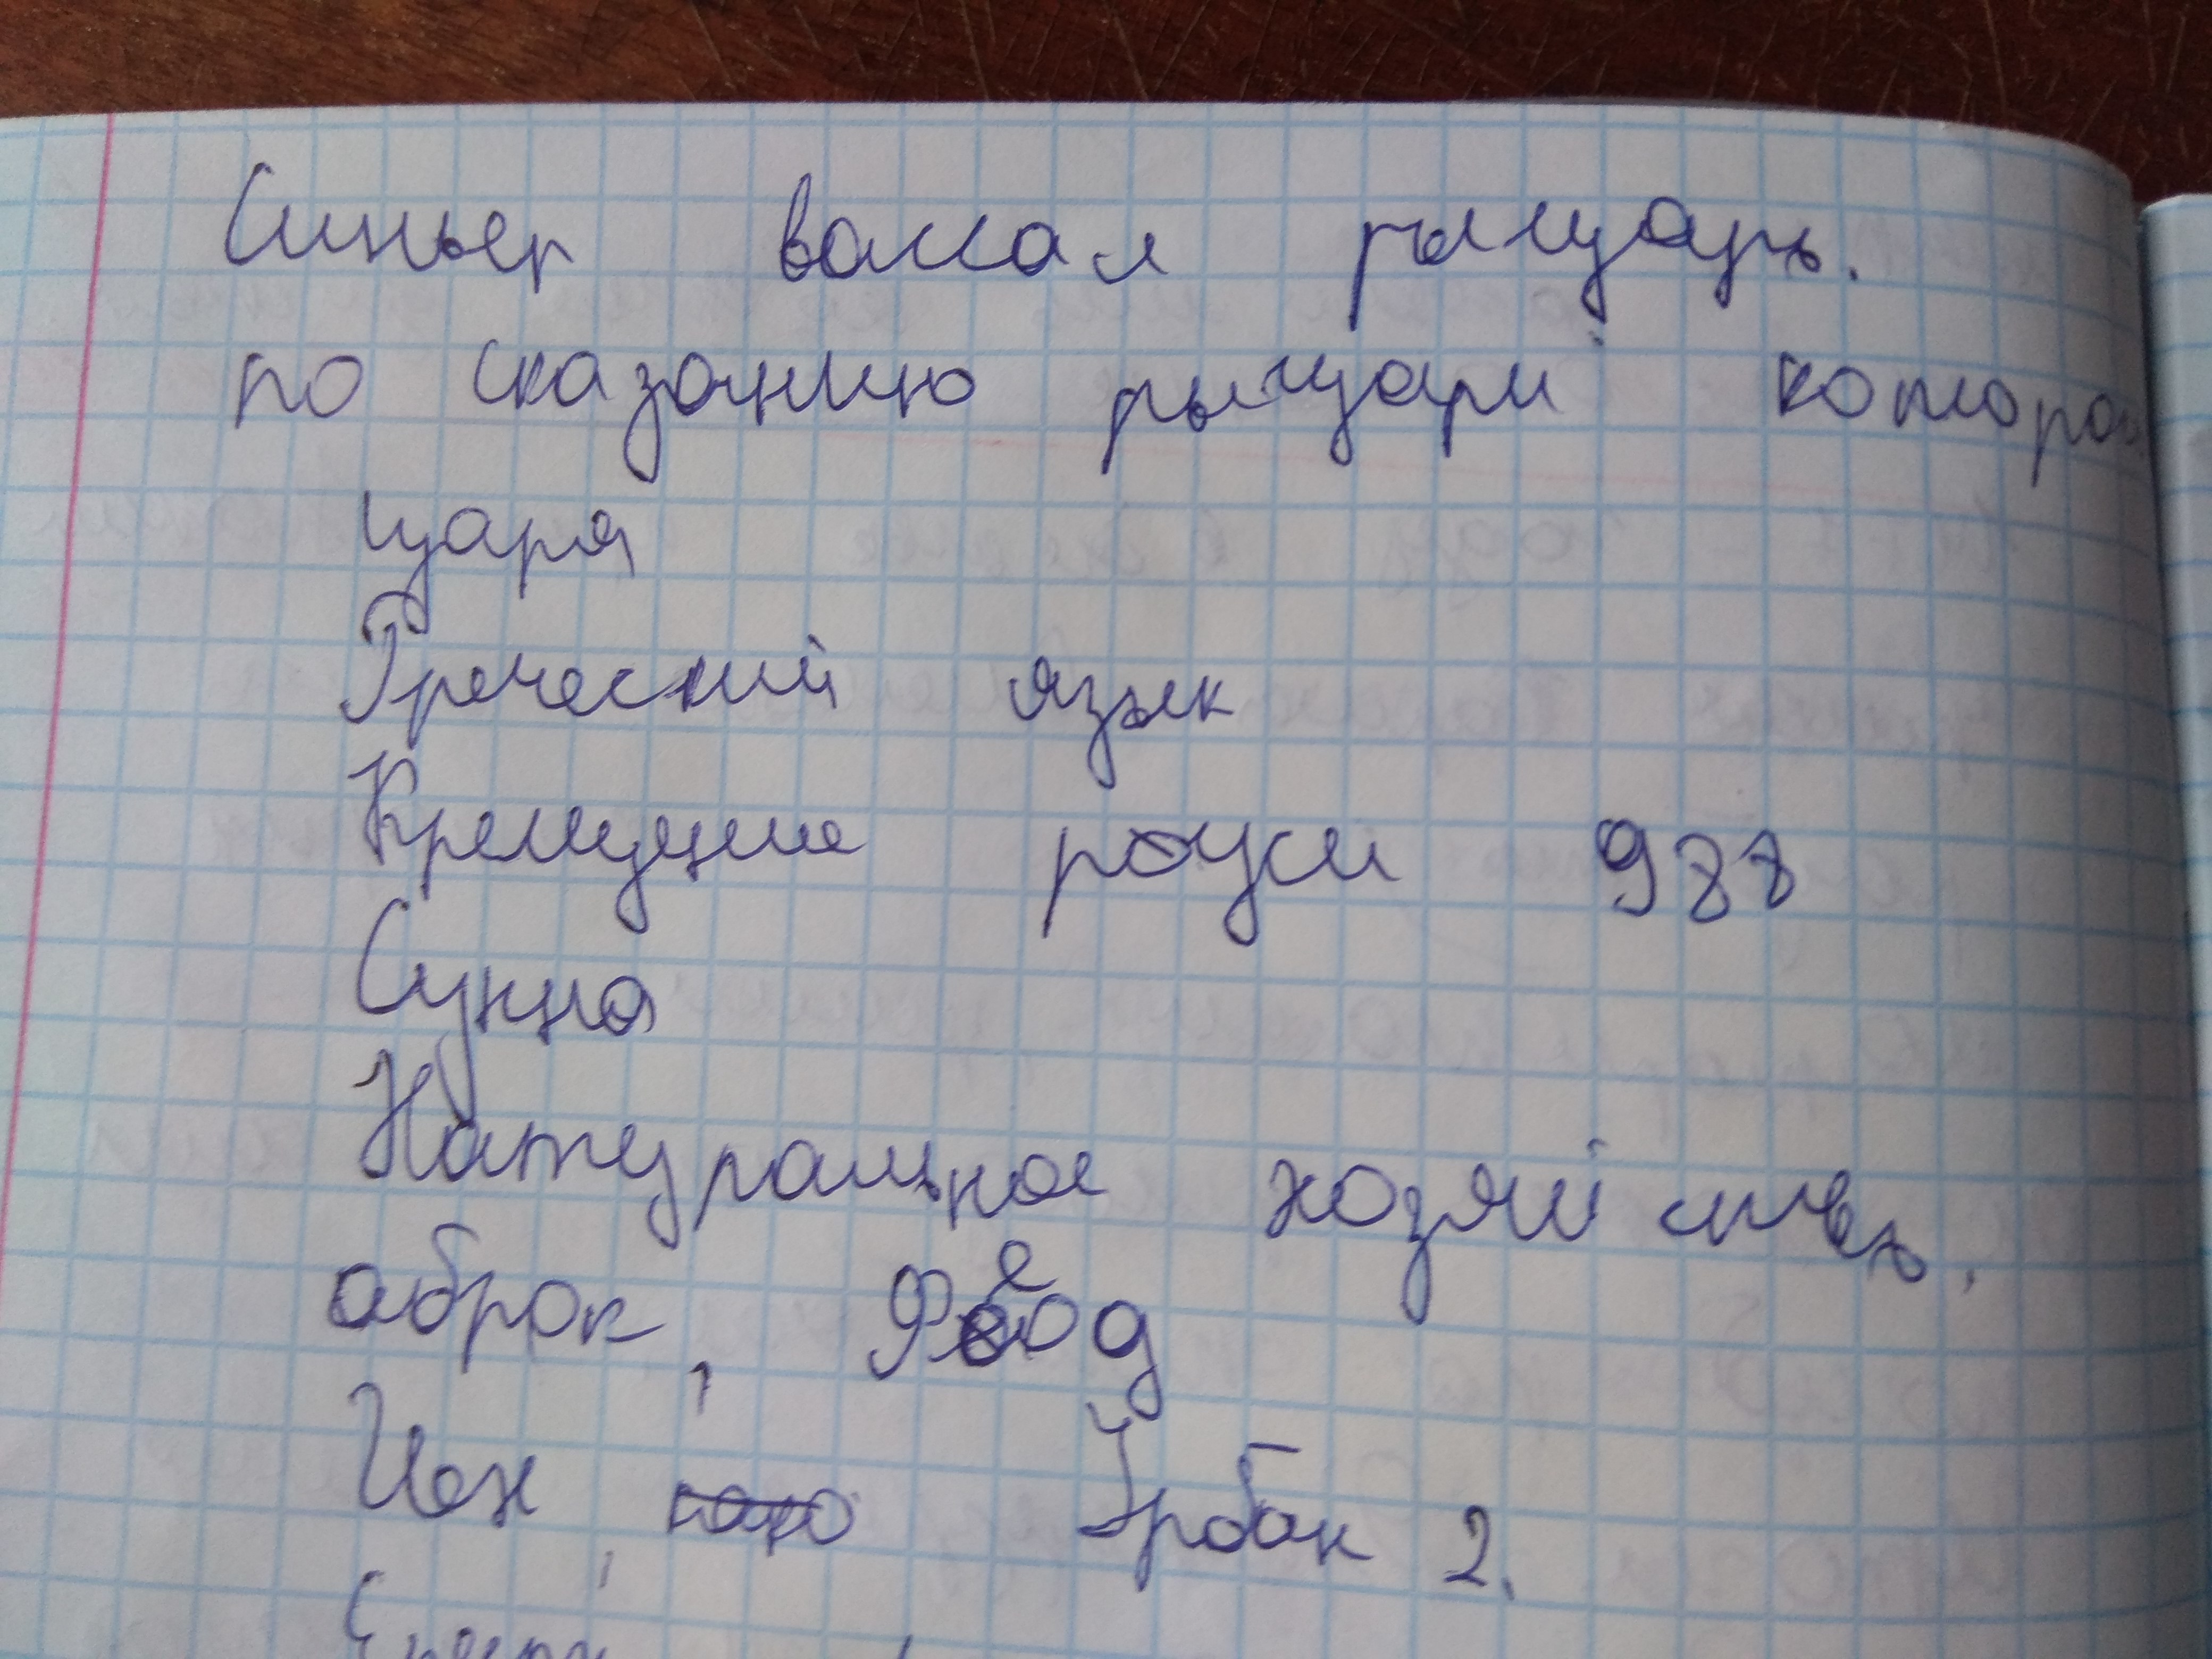 Синьер вассал рыцарь.
по сказанию рыцари которой
царя
Греческий язык
Крещение руси 988
Сунна
Натуральное хозяйство.
аброк, Феод
Цех, Урбан 2.